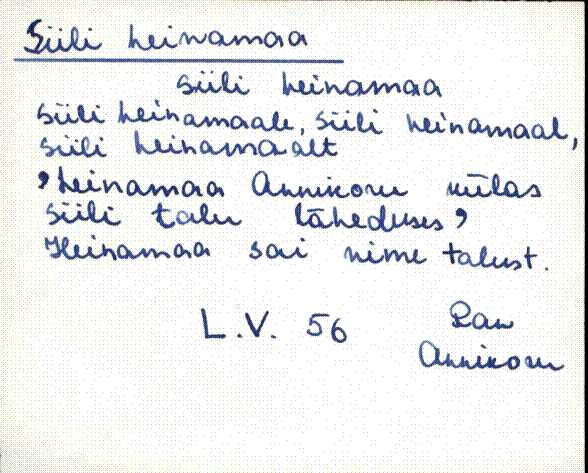 Siili heinamaa
siili heinamaa
siili heinamaale, siili heinamaal,
siili heinamaalt
'heinamaa Annikoru külas
siili talu läheduses'
Heinamaa sai nime talust.
L.V. 56 Ran
Annikoru